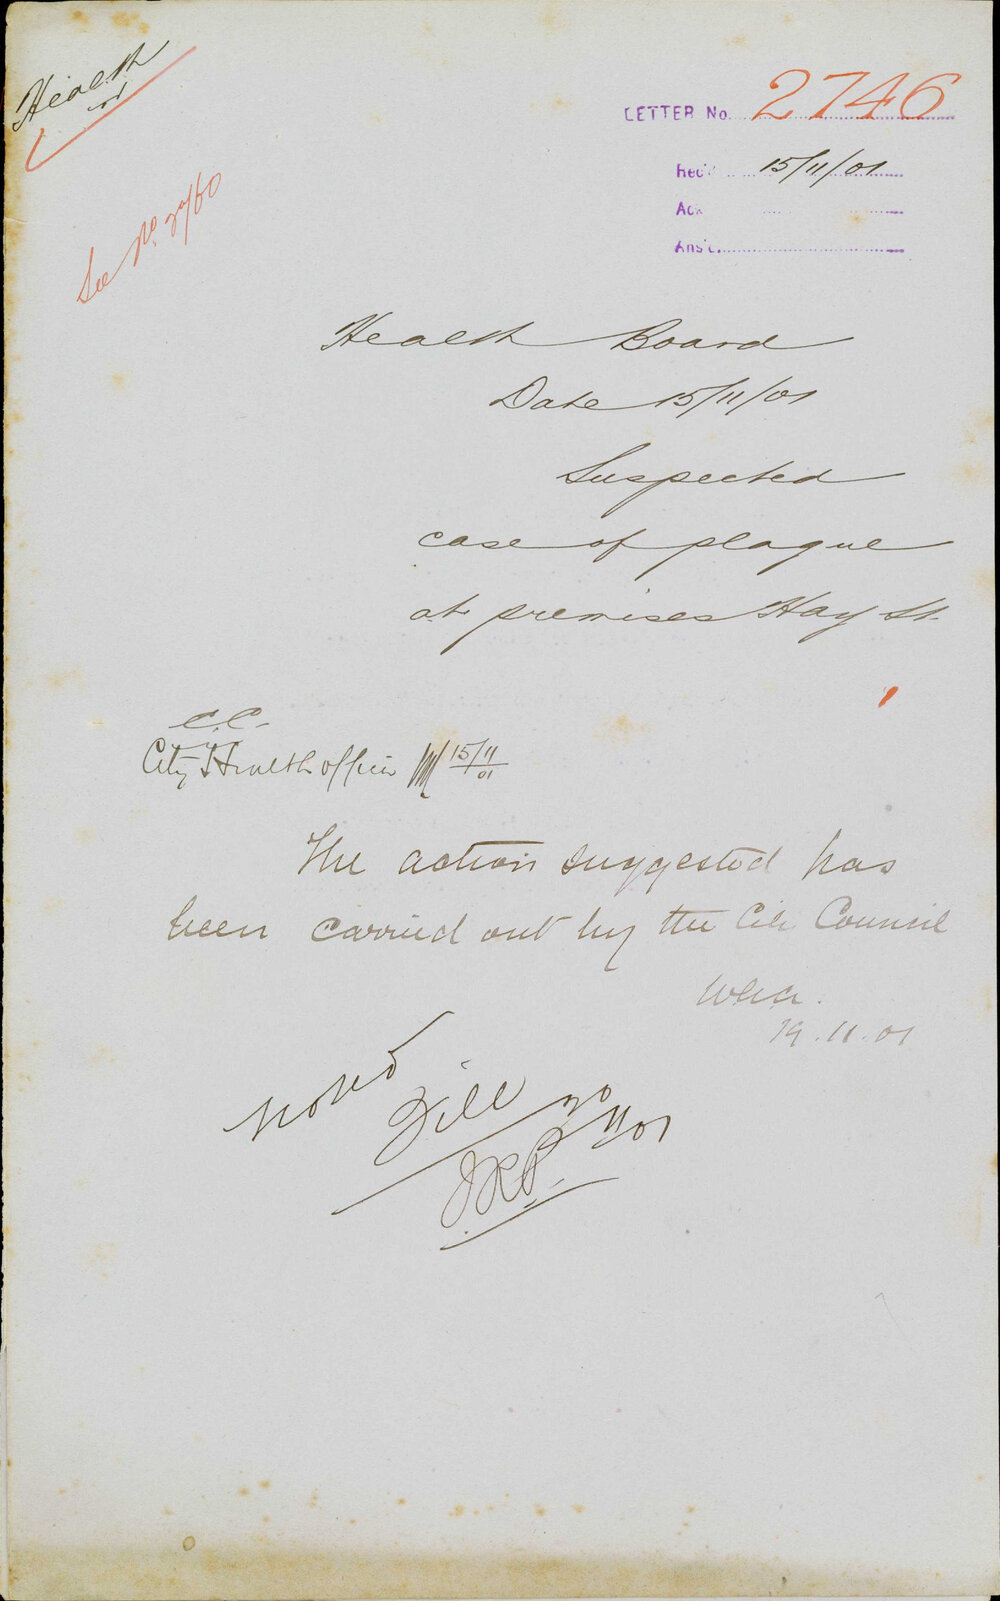 Health
LETTER No. 2746
Rec'd 15/11/01
Ack
Ans'd.
See No. 2760
Health Board
Date 15/11/01
Suspected
case of plague
at premises Hay St.
C.C.
City Health officer 15/11/01
The action suggested has
been carried out by the City Council
19.11.01
Noted
File 20/11/01